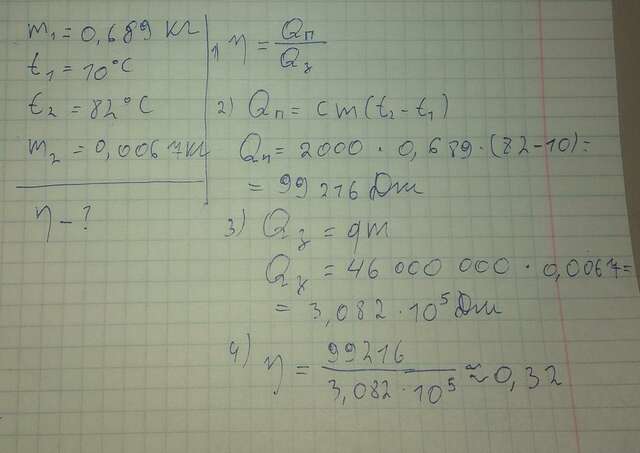 m₁ = 0,689 кг
t₁ = 10°C
t₂ = 82°C
m₂ = 0,0067 кг
η - ?
1) η = Qп / Qз
2) Qп = cm(t₂ - t₁)
Qп = 2000 · 0,689 · (82 - 10) =
= 99216 Дж
3) Qз = qm
Qз = 46 000 000 · 0,0067 =
= 3,082 · 10⁵ Дж
4) η = 99216 / 3,082 · 10⁵ ≈ 0,32